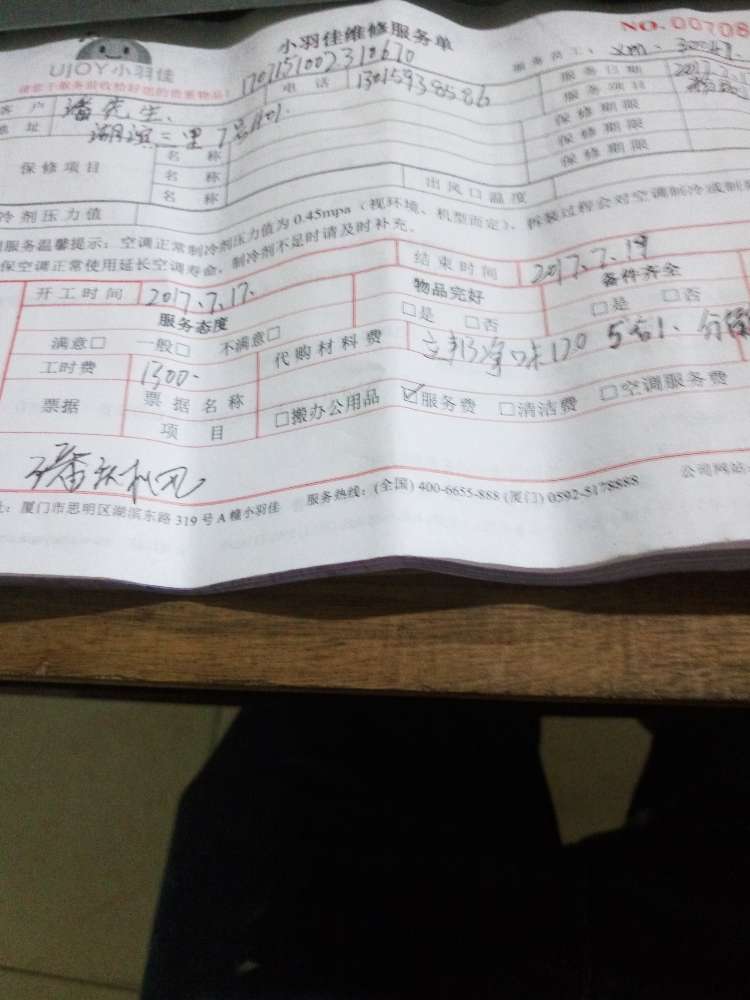 小羽佳维修服务单
NO.00708
UJOY小羽佳
1707151002310670
服务员工：
请您于服务前收拾好您的贵重物品！
客户 潘先生、 电话 13015938586 服务日期 2017.7.1
地址 湖滨二里7号1101. 服务项目
保修项目 名称 保修期限
名称 保修期限
名称 保修期限
出风口温度
冷剂压力值
服务温馨提示：空调正常制冷剂压力值为 0.45mpa（视环境、机型而定），拆装过程会对空调制冷或制
保空调正常使用延长空调寿命，制冷剂不足时请及时补充。
开工时间 2017.7.17. 结束时间 2017.7.19
服务态度 物品完好 备件齐全
满意□ 一般□ 不满意□ □是 □否 □是 □否
工时费 1300- 代购材料费 净味120
票据 票据名称
项目 □搬办公用品 ☑服务费 □清洁费 □空调服务费
厦门市思明区湖滨东路 319 号 A 幢小羽佳 服务热线：(全国) 400-6655-888 (厦门) 0592-5178888 公司网站